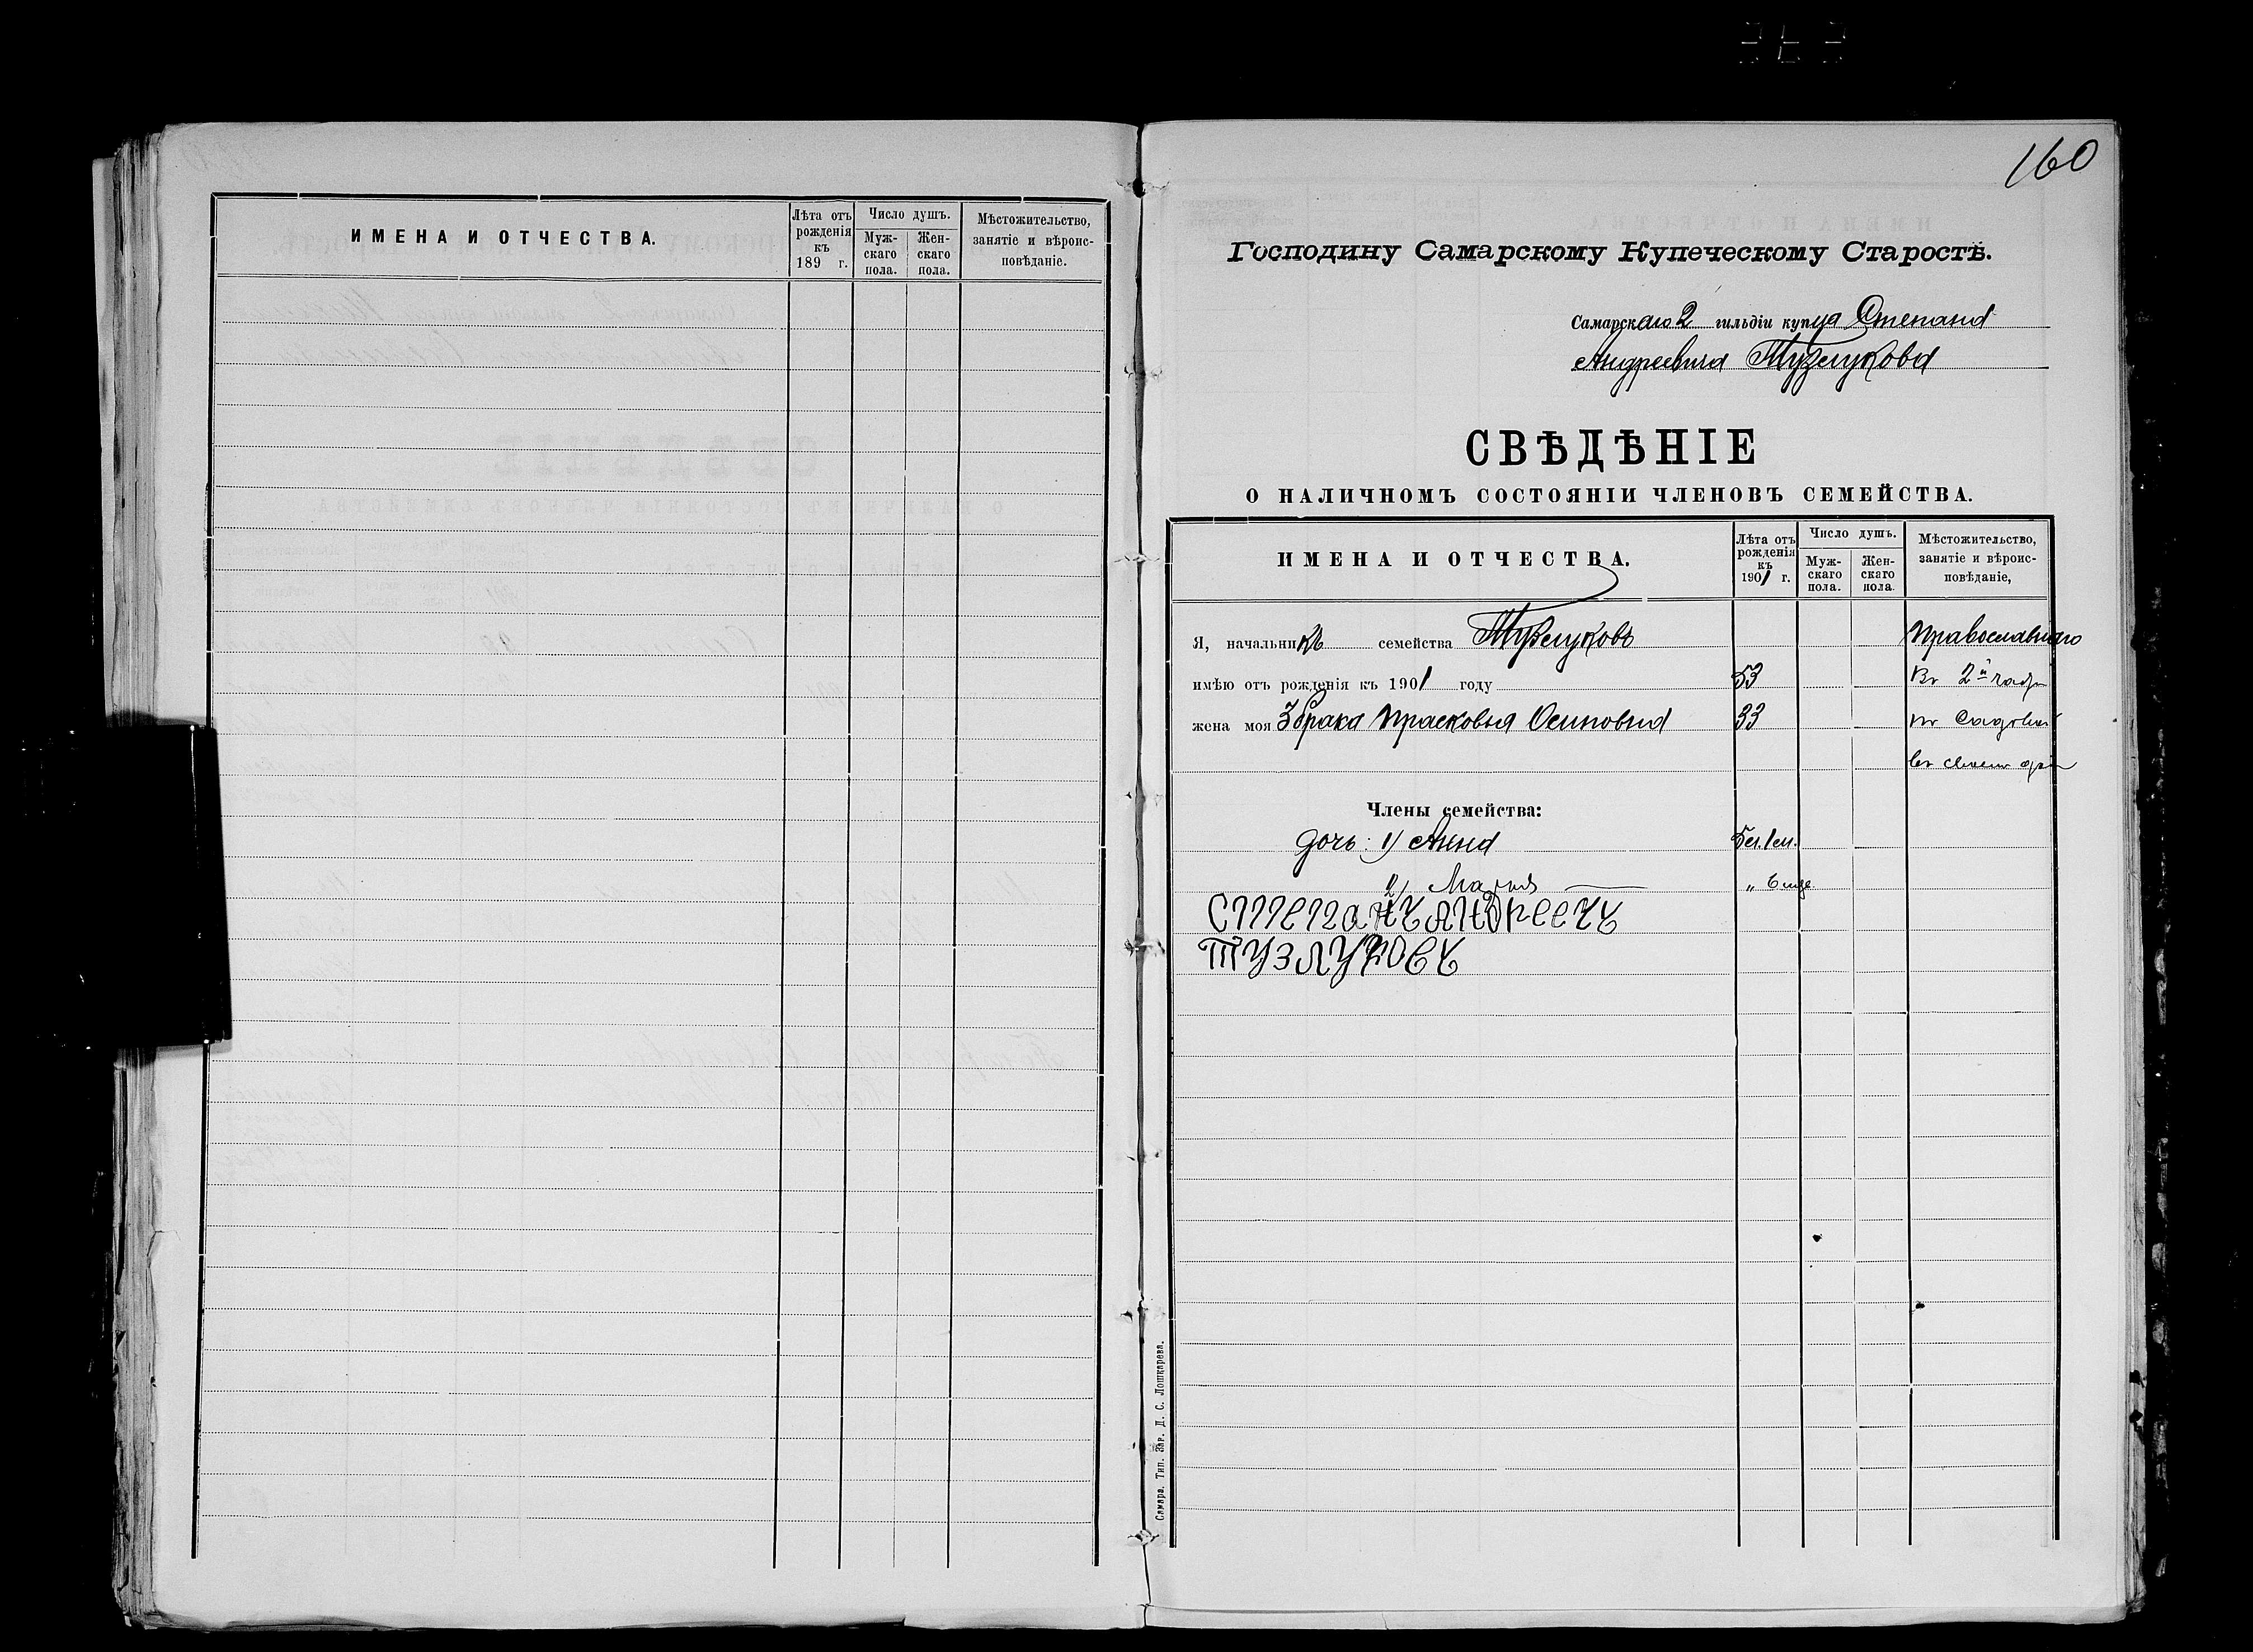 ИМЕНА И ОТЧЕСТВА.
Лѣта отъ рожденія къ 189 г.
Число душъ.
Мужскаго пола.
Женскаго пола.
Мѣстожительство, занятіе и вѣроисповѣданіе.
160
Господину Самарскому Купеческому Старостѣ.
Самарскаго 2 гильдіи купца Степана
Андреевича Тузлукова
СВѢДѢНІЕ
О НАЛИЧНОМЪ СОСТОЯНІИ ЧЛЕНОВЪ СЕМЕЙСТВА.
ИМЕНА И ОТЧЕСТВА.
Лѣта отъ рожденія къ 1901 г.
Число душъ.
Мужскаго пола.
Женскаго пола.
Мѣстожительство, занятіе и вѣроисповѣданіе,
Я, начальникъ семейства Тузлуковъ Православнаго
имѣю отъ рожденія къ 1901 году 53 Въ 2й части
жена моя 3 брака Прасковья Осиповна 33 по Садовой
въ своемъ домѣ
Члены семейства:
дочь: 1) Анна
2) Марія
Степанъ Андреевъ
Тузлуковъ
Самара. Тип. Зар. Д. С. Лошкарева.